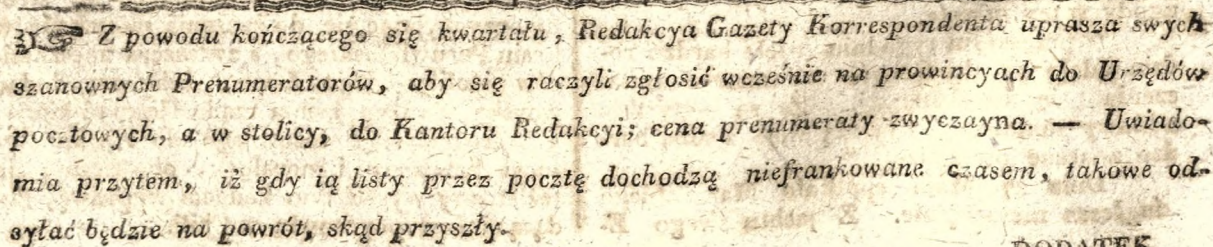 ☞ Z powodu kończącego się kwartału, Redakcya Gazety Korrespondenta uprasza swych
szanownych Prenumeratorów, aby się raczyli zgłosić wcześnie na prowincyach do Urzędów
pocztowych, a w stolicy, do Kantoru Redakcyi; cena prenumeraty zwyczayna. — Uwiado-
mia przytem, iż gdy ią listy przez pocztę dochodzą niefrankowane czasem, takowe od-
syłać będzie na powrót, skąd przyszły.
DODATEK